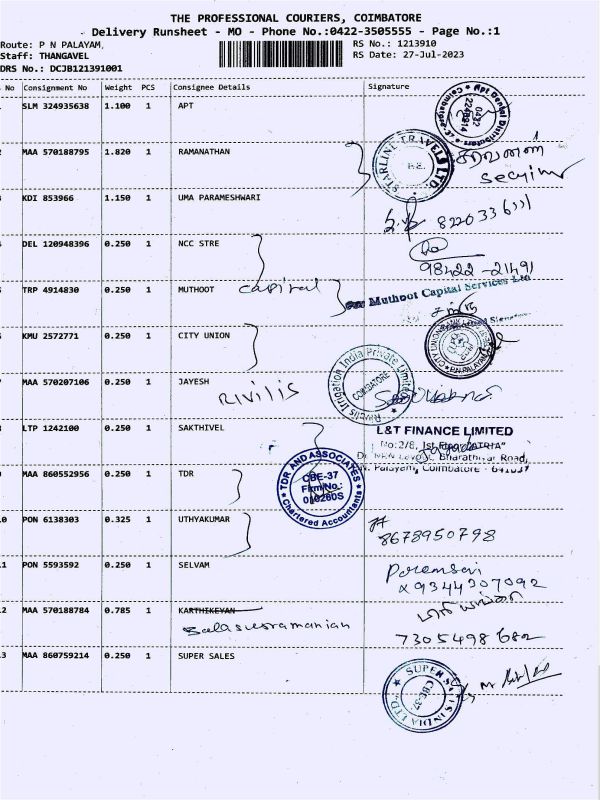 THE PROFESSIONAL COURIERS, COIMBATORE
Delivery Runsheet - MO - Phone No.:0422-3505555 - Page No.:1
Route: P N PALAYAM,
RS No.: 1213910
Staff: THANGAVEL
RS Date: 27-Jul-2023
DRS No.: DCJB121391001
No Consignment No Weight PCS Consignee Details Signature
SLM 324935638 1.100 1 APT
Apt Dental Distributors
Coimbatore
0422
2248914
2 MAA 570188795 1.820 1 RAMANATHAN
STARLINE TRAVELS LTD.
சரவணன்
3 KDI 853966 1.150 1 UMA PARAMESHWARI
4 DEL 120948396 0.250 1 NCC STRE
98422 -21491
5 TRP 4914830 0.250 1 MUTHOOT capital
For Muthoot Capital Services Ltd
6 KMU 2572771 0.250 1 CITY UNION
CITY UNION BANK
P.N.PALAYAM
7 MAA 570207106 0.250 1 JAYESH
RIVILIS
Rivulis Irrigation India Private Limited
COIMBATORE
8 LTP 1242100 0.250 1 SAKTHIVEL
L&T FINANCE LIMITED
No:2/8, 1st Floor
Bharathiyar Road,
Palayam, Coimbatore - 641037
9 MAA 860552956 0.250 1 TDR
TDR AND ASSOCIATES
CBE-37
Firm No.:
010260S
Chartered Accountants
10 PON 6138303 0.325 1 UTHYAKUMAR
8678950798
11 PON 5593592 0.250 1 SELVAM
9344207092
12 MAA 570188784 0.785 1 KARTHIKEYAN
Balasusramanian
7305498682
13 MAA 860759214 0.250 1 SUPER SALES
SUPER SALES INDIA LTD
CBE-37.